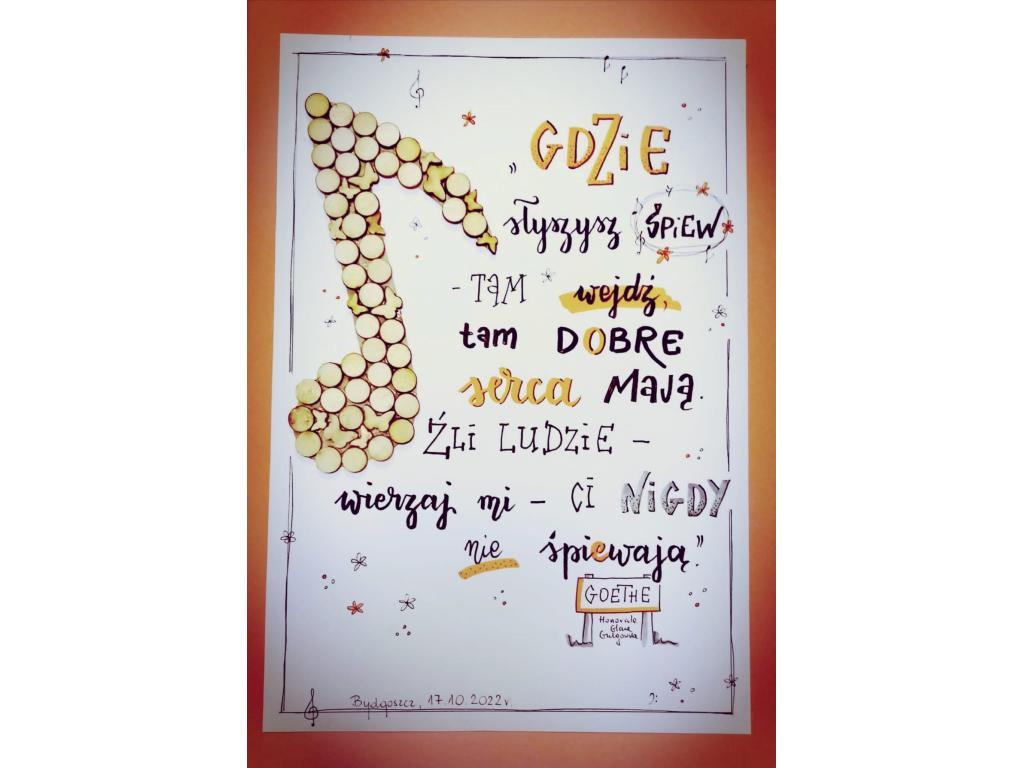 „GDZiE
słyszysz ŚPiEW
- TAM wejdź,
tam DOBRE
serca MAJĄ.
ŹLI LUDZIE -
wierzaj mi - CI NIGDY
nie śpiewają."
GOETHE
Bydgoszcz, 17.10.2022r.